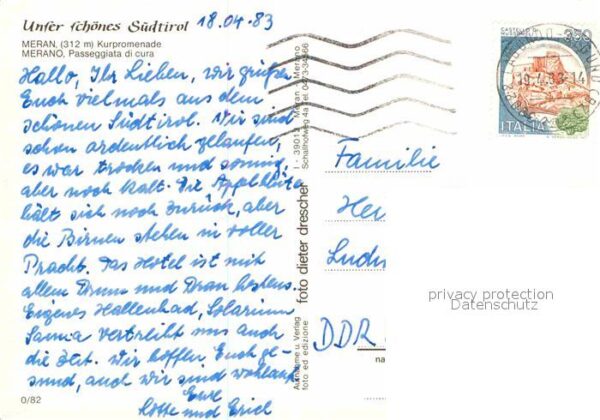 Unser schönes Südtirol 18.04.83
MERAN, (312 m) Kurpromenade
MERANO, Passeggiata di cura
Hallo, Ihr Lieben, wir grüßen
Euch vielmals aus dem
schönen Südtirol. Wir sind
schon ordentlich gelaufen,
es war trocken und sonnig,
aber noch kalt. Die Apfelblüte
hält sich noch zurück, aber
die Birnen stehen in voller
Pracht. Das Hotel ist mit
allem Drum und Dran bestens.
Eigenes Hallenbad, Solarium
Sauna vertreibt uns auch
die Zeit. Wir hoffen Euch ge-
sund, auch wir sind wohlauf
Eure
Lotte und Erich
0/82
Aufnahme u. Verlag
foto ed edizione
foto dieter drescher
I - 39012 Meran - Merano
Tel. 0473-34566
350
ITALIA
Familie
He
Ludw
DDR
na
privacy protection
Datenschutz